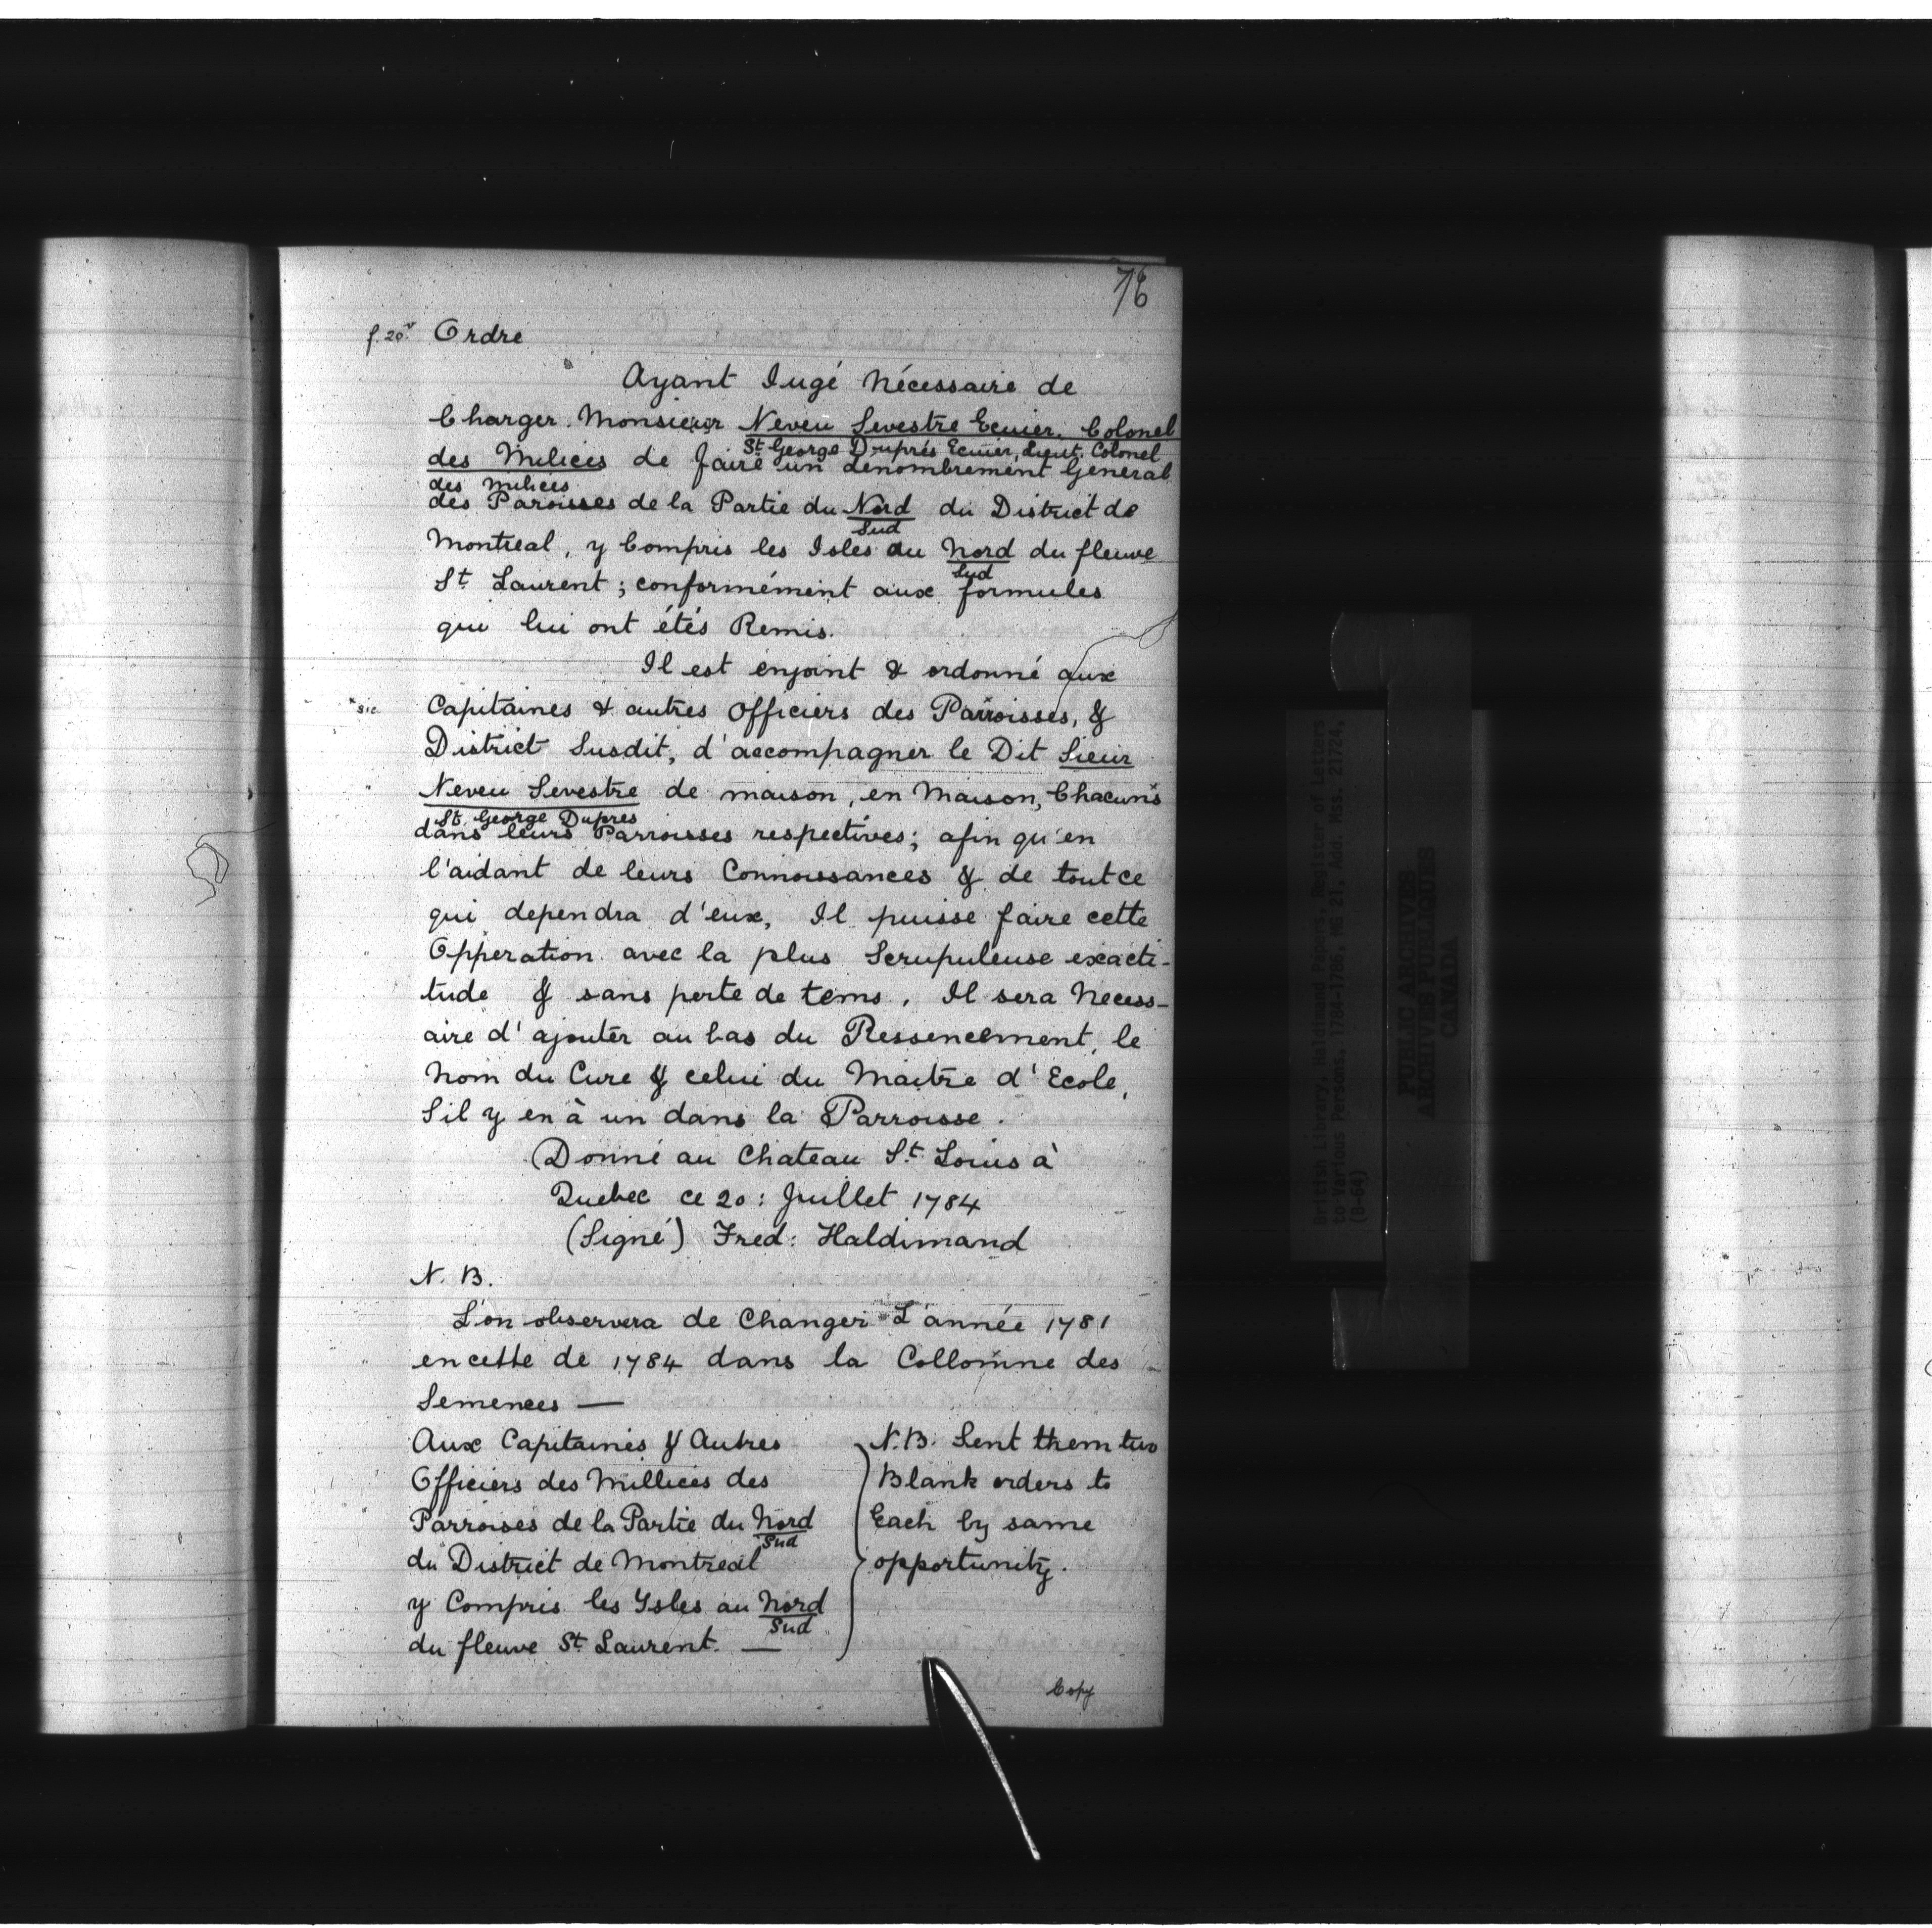 76
f. 20v Ordre
Ayant Jugé Nécessaire de
Charger Monsieur Neveu Sevestre Ecuier, Colonel
St. George Duprés Ecuier, Lieut. Colonel
des Milices de faire un denombrement General
des Milices
des Paroisses de la Partie du Nord du District de
Sud
Montreal, y Compris les Isles au Nord du fleuve
Sud
St Laurent ; conformément aux formules
que lui ont étés Remis.
Il est enjoint & ordonné aux
* sic. Capitaines & autres officiers des Parroisses, &
District Susdit, d'accompagner le Dit Sieur
Neveu Sevestre de maison, en Maison, Chacuns
St. George Dupres
dans leurs Parroisses respectives; afin qu'en
l'aidant de leurs Connoissances & de tout ce
qui dependra d'eux, Il puisse faire cette
Opperation avec la plus Scrupuleuse exacti-
tude & sans perte de tems. Il sera Necess-
aire d'ajouter au bas du Ressencement, le
Nom du Cure & celui du Maitre d'Ecole,
Sil y en à un dans la Parroisse.
Donné au Chateau St. Louis à
Quebec ce 20: Juillet 1784
(Signé) Fred: Haldimand
N. B.
L'on observera de Changer L'année 1781
en cette de 1784 dans la Collomne des
Semences —
Aux Capitaines & Autres
Officiers des Millices des
Parroises de la Partie du Nord
Sud
du District de Montreal
y Compris les Ysles au Nord
Sud
du fleuve St. Laurent. —
N.B. Sent them two
Blank orders to
Each by same
opportunity.
Copy
British Library, Haldimand Papers, Register of Letters
to Various Persons, 1784-1786, MG 21, Add. Mss. 21724,
(B-64)
PUBLIC ARCHIVES
ARCHIVES PUBLIQUES
CANADA